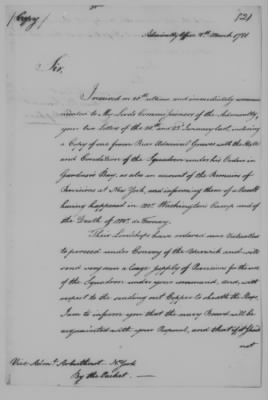 (Copy)
121
Admiralty Office 4th March 1781
Sir,
I received on 20th ultimo and immediately commu-
nicated to My Lords Commissioners of the Admiralty,
your two Letters of the 22d & 23d January last, inclosing
a Copy of one from Rear Admiral Graves with the State
and Condition of the Squadron under his Orders in
Gardners Bay, as also an account of the Remains of
Provisions at New York, and informing them of a Revolt
having happened in Mr. Washington's Camp and of
the Death of Mr. de Ternay.
Their Lordships have ordered two Victuallers
to proceed under Convoy of the Warwick and will
send very soon a large supply of Provisions for the use
of the Squadron under your command, and, with
respect to the sending out Copper to sheath the Ships
I am to inform you that the Navy Board will be
acquainted with your Proposal, and that if it should
not
Vice Adml. Arbuthnot N. York
By the Packet